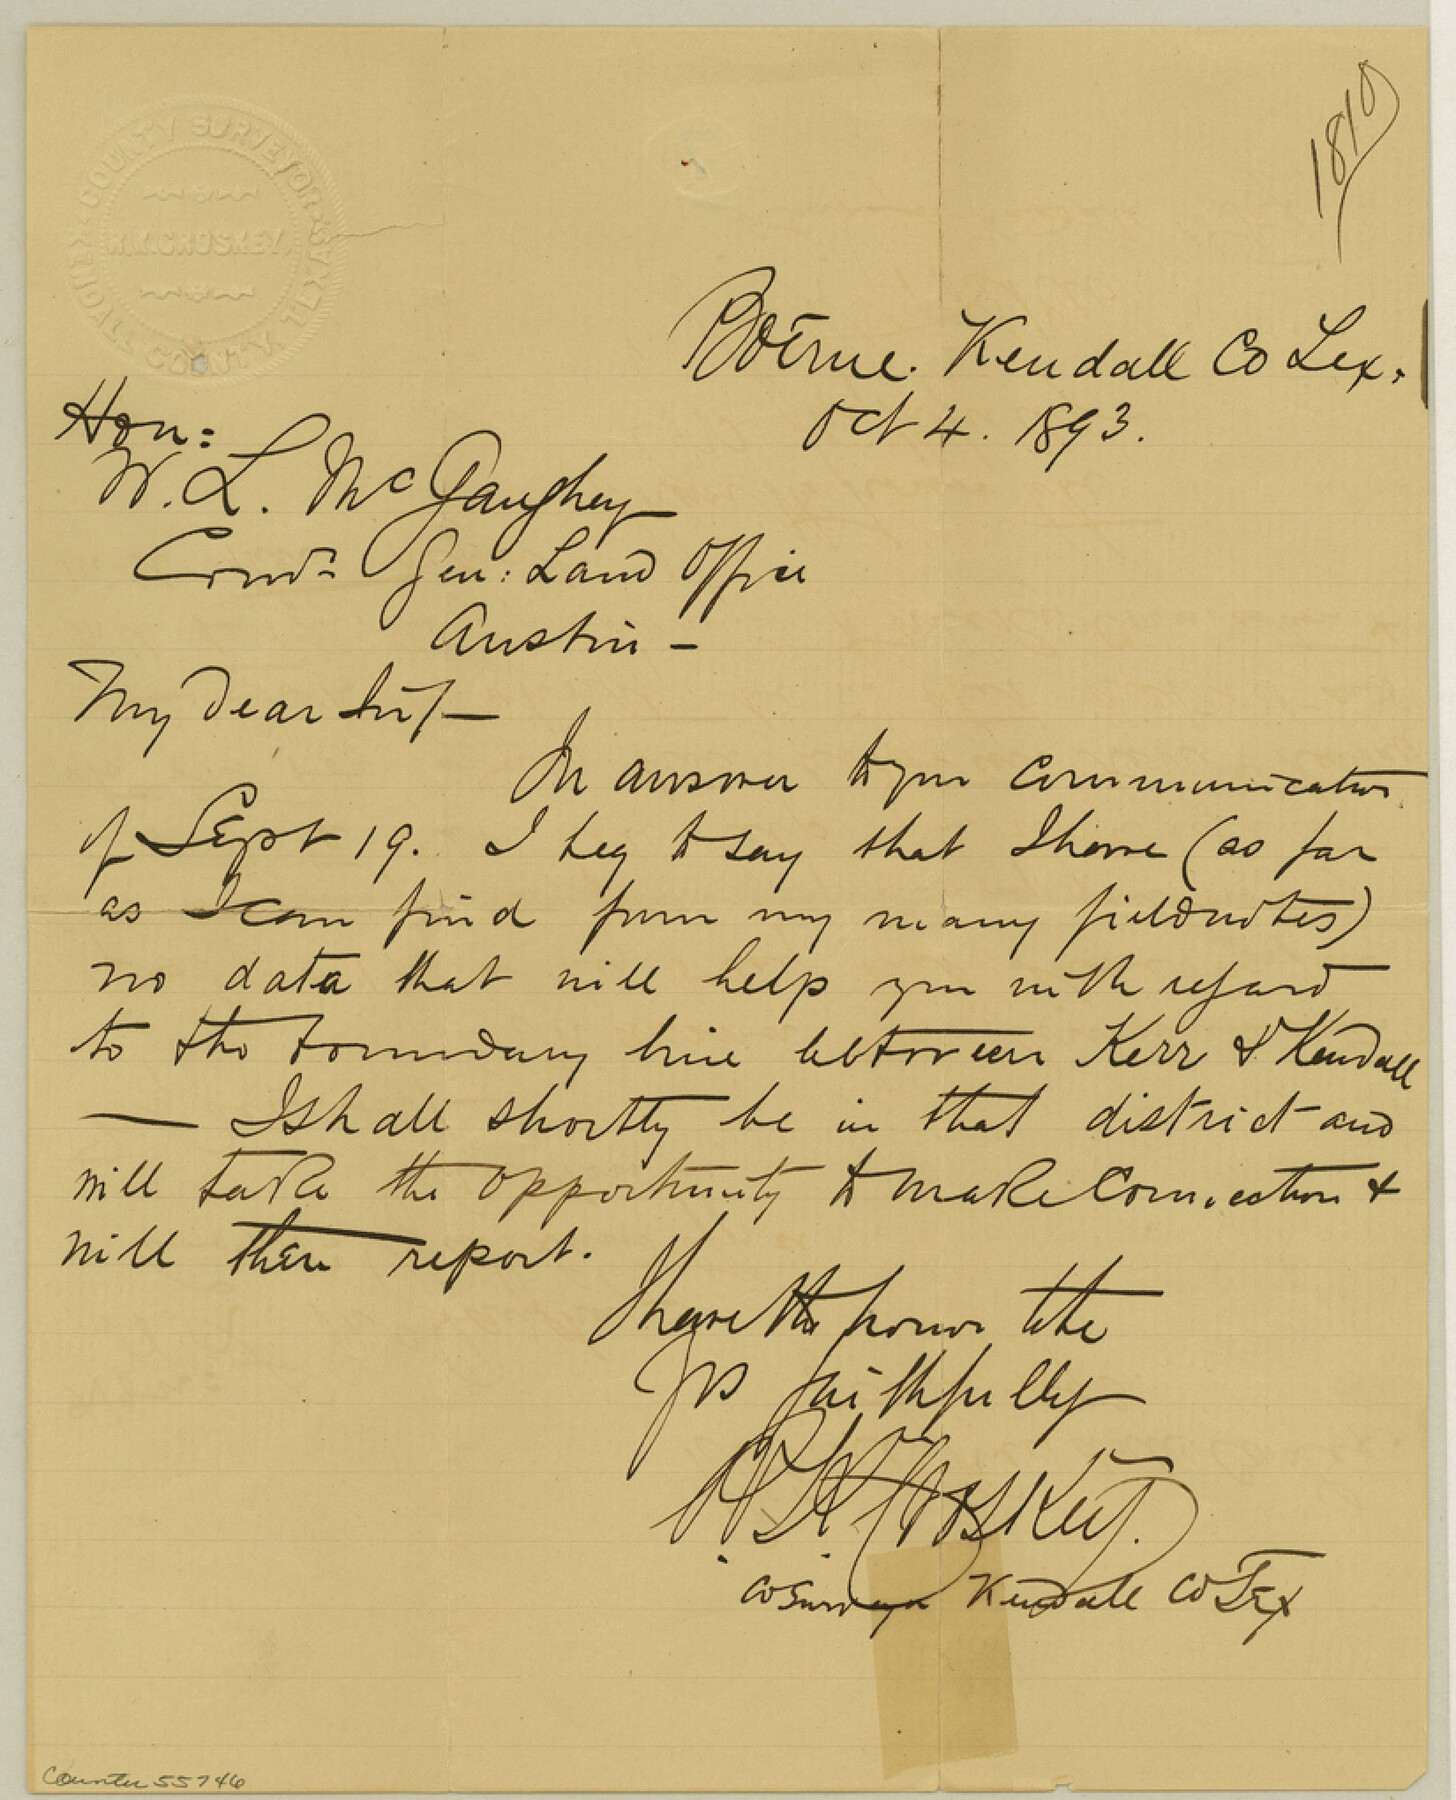 1810
COUNTY SURVEYOR
KENDALL COUNTY TEXAS
CROSKEY.
Boerne. Kendall Co Tex.
Oct 4. 1893.
Hon:
W. L. McGaughey
Comr Gen: Land Office
Austin –
My Dear Sir/ —
In answer to your communication
of Sept 19. I beg to say that I have (as far
as I can find from my many fieldnotes)
no data that will help you with regard
to the boundary line between Kerr & Kendall
— I shall shortly be in that district and
will take the opportunity to make Connection &
will then report.
I have the honor to be
Yrs faithfully
Croskey.
Co Surveyor Kendall Co Tex
Counter 55746